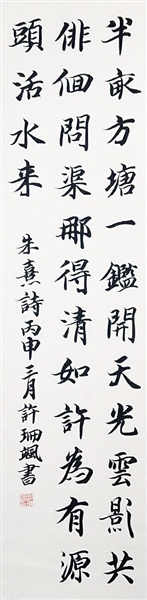 半畝方塘一鑑開天光雲影共
俳佪問渠那得清如許為有源
頭活水来
朱熹詩丙申三月許珊颯書